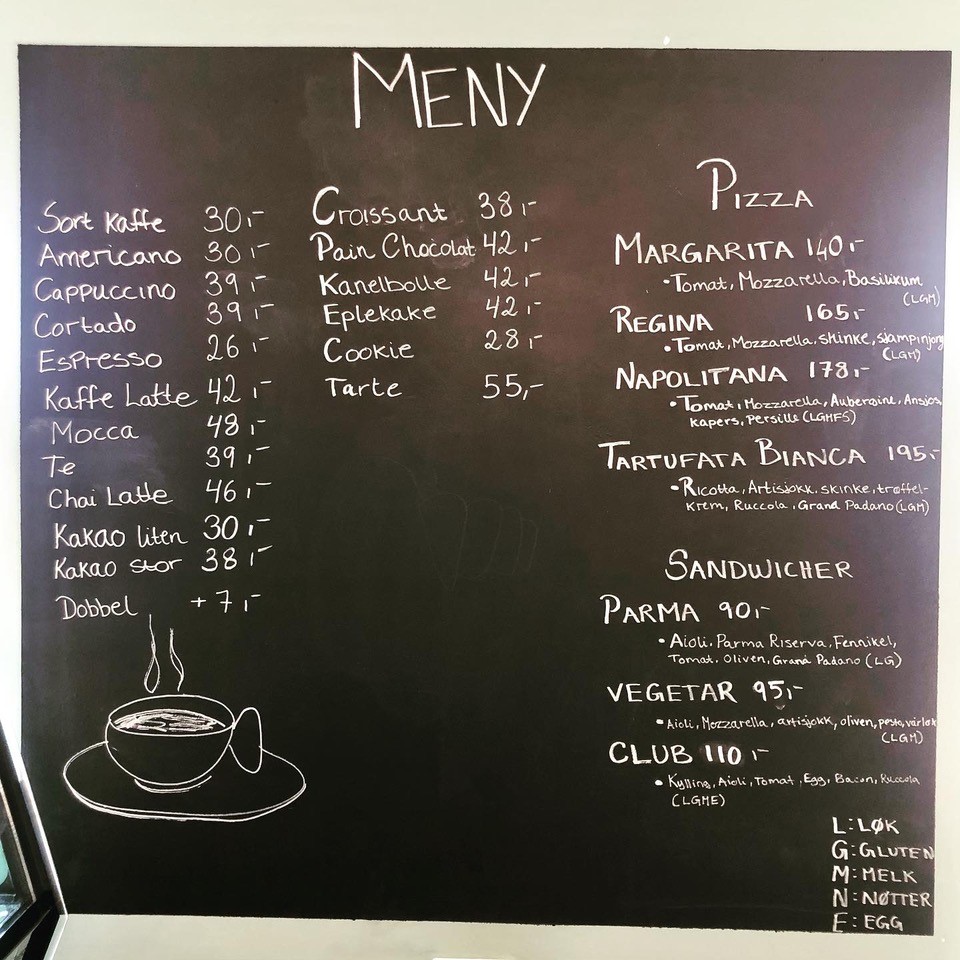 MENY
Sort Kaffe 30,-
Americano 30,-
Cappuccino 39,-
Cortado 39,-
Espresso 26,-
Kaffe Latte 42,-
Mocca 48,-
Te 39,-
Chai Latte 46,-
Kakao liten 30,-
Kakao stor 38,-
Dobbel +7,-
Croissant 38,-
Pain Chocolat 42,-
Kanelbolle 42,-
Eplekake 42,-
Cookie 28,-
Tarte 55,-
PIZZA
MARGARITA 140,-
•Tomat, Mozzarella, Basilikum
(LGM)
REGINA 165,-
•Tomat, Mozzarella, skinke, sjampinjong
(LGM)
NAPOLITANA 178,-
•Tomat, Mozzarella, Aubergine, Ansjos,
kapers, Persille (LGMFS)
TARTUFATA BIANCA 195,-
•Ricotta, Artisjokk, skinke, trøffel-
krem, Ruccola, Grana Padano (LGM)
SANDWICHER
PARMA 90,-
•Aioli, Parma Riserva, Fennikel,
Tomat, Oliven, Grana Padano (LG)
VEGETAR 95,-
•Aioli, Mozzarella, artisjokk, oliven, pesto, vårløk
(LGM)
CLUB 110,-
•Kylling, Aioli, Tomat, Egg, Bacon, Ruccola
(LGME)
L:LØK
G:GLUTEN
M:MELK
N:NØTTER
E:EGG